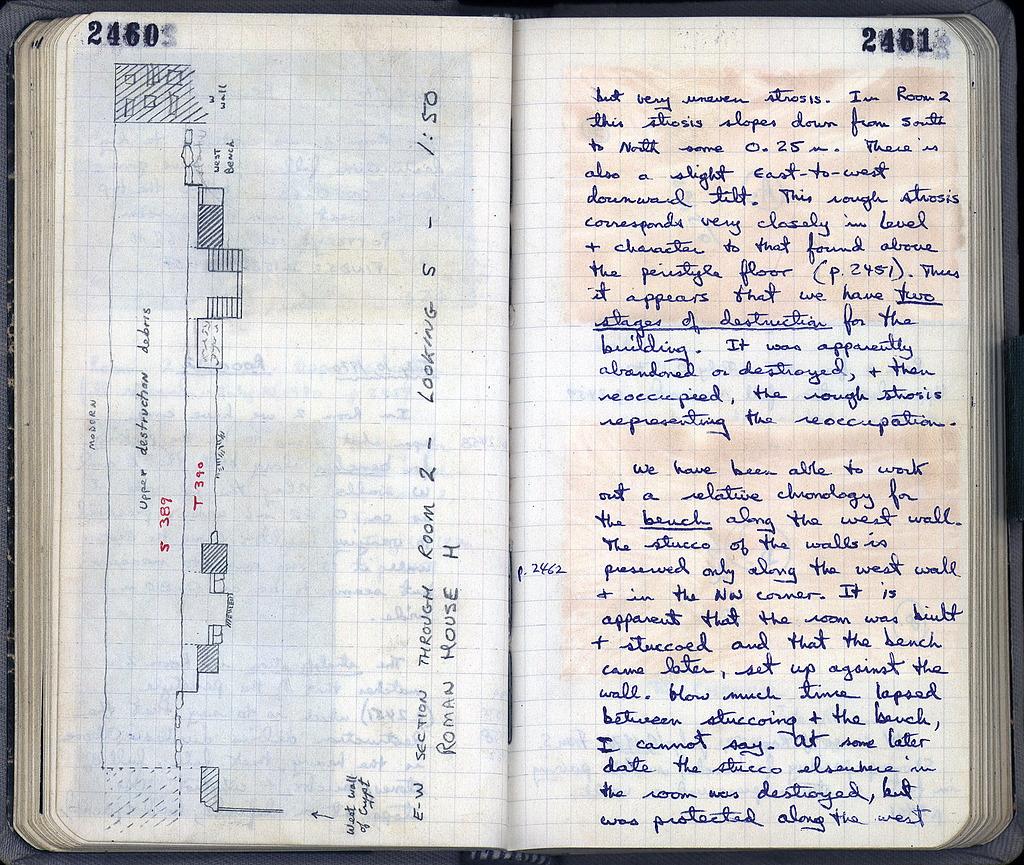 2460
W wall
West Bench
MODERN
Upper destruction debris
S 389
T 390
West wall of Crypt
E-W SECTION THROUGH ROOM 2 - LOOKING S - 1:50
ROMAN HOUSE H
2461
but very uneven strosis. In Room 2
this strosis slopes down from south
to North some 0.25 m. There is
also a slight East-to-west
downward tilt. This rough strosis
corresponds very closely in level
+ character to that found above
the peristyle floor (p. 2451). Thus
it appears that we have two
stages of destruction for the
building. It was apparently
abandoned or destroyed, + then
reoccupied, the rough strosis
representing the reoccupation.
We have been able to work
out a relative chronology for
the bench along the west wall.
The stucco of the walls is
p. 2462
preserved only along the west wall
+ in the NW corner. It is
apparent that the room was built
+ stuccoed and that the bench
came later, set up against the
wall. How much time lapsed
between stuccoing + the bench,
I cannot say. At some later
date the stucco elsewhere in
the room was destroyed, but
was protected along the west